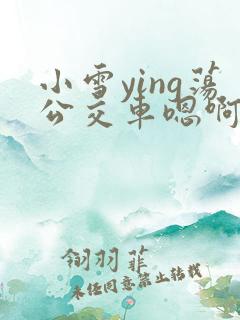 小雪ying荡
公交车嗯啊
翎羽菲
未经同意禁止转载